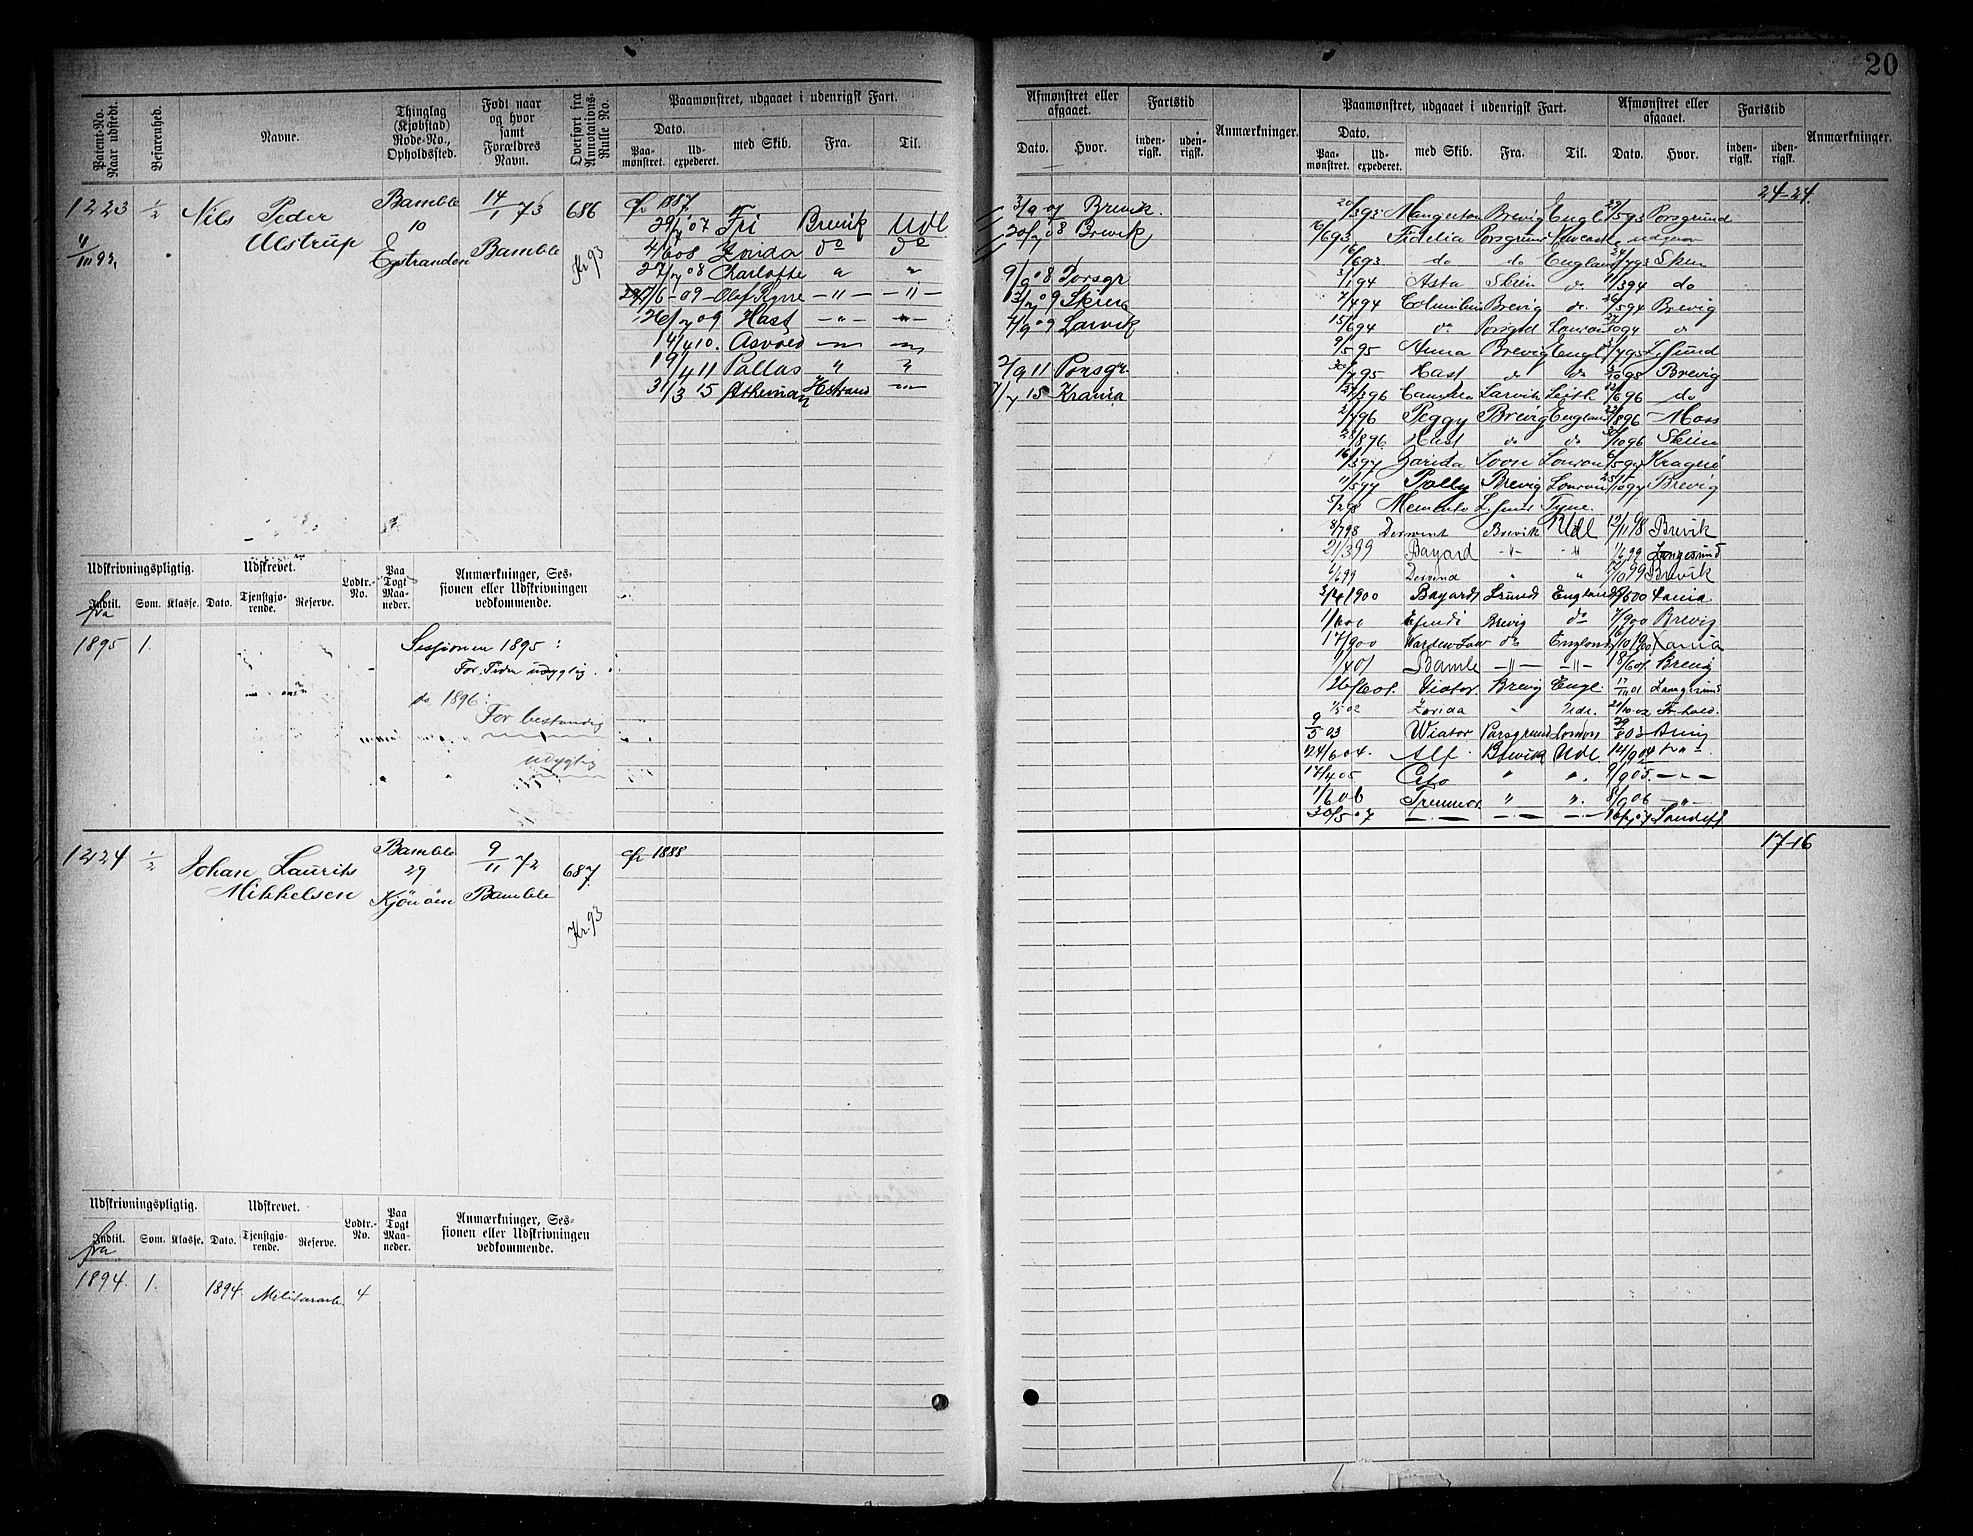 20
Patent-No. Naar udstedt.
Befarenhed.
Navne.
Thinglag (Kjøbstad) Rode-No., Opholdssted.
Født naar og hvor samt Forældres Navn.
Overført fra Annotations-Rulle No.
Paamønstret, udgaaet i udenrigsk Fart.
Dato.
Paa-mønstret.
Ud-expederet.
med Skib.
Fra.
Til.
Afmønstret eller afgaaet.
Dato.
Hvor.
Fartstid
inden-rigsk.
uden-rigsk.
Anmærkninger.
Paamønstret, udgaaet i udenrigsk Fart.
Dato.
Paa-mønstret.
Ud-expederet.
med Skib.
Fra.
Til.
Afmønstret eller afgaaet.
Dato.
Hvor.
Fartstid
inden-rigsk.
uden-rigsk.
Anmærkninger.
1223 1/2 Nils Peder Ulstrup
Bamble 10
14/1 73 Bamble
686 Kr 93
29/7 07 Fri Brevik Udl
4/6 08 Zorida do do
27/7 08 Charlotte
17/6-09 Olaf Kyrre -"- -"-
26/7 09 Hast -"-
14/4 10. Asvald
19/4 11 Pallas "
31/3 15 Athenian Hstrand
3/9 07 Brevik.
20/7 08 Brevik
9/9 08 Porsgr
13/7 09 Skien
4/9 09 Larvik
2/9 11 Porsgr.
7/7 15 Krania
24-24.
20/3 93 Mangerton Brevig Engl 23/5 93 Porsgrund
10/6 93 Fidelia Porsgrund Newcastle
16/6 93 do do England 24/7 93 Skien
3/1 94 Asta Skien do 11/3 94 do
7/4 94 Columbus Brevig do. 26/5 94 Brevig
15/6 94 do Porsgrd London 27/10 94 do
9/5 95 Anna Brevig Engl 31/7 95 L.sund
30/7 95 Hast do do 3/10 95 Brevig
27/3 96 Larvik Leith 12/6 96 do
2/7 96 Peggy Brevig England 22/8 96 Moss
28/8 96 Hast do do 30/10 96 Skien
16/3 97 Zarida Soon London 6/5 97 Kragerø
11/5 97 Polly Brevig London 25/10 97 Brevig
5/2 98 Memento L.sund Tyne.
8/7 98 Derwent Brevik Udl 12/11 98 Brevik
21/3 99 Bayard -"- -"- 1/6 99 Langesund
6/6 99 " " 17/10 99 Brevik
3/4 1900 Bayard Lsund England /5 00
1/6 00 Brevig do 7/9 00 Brevig
17/9 00 do England 16/10 1900 Xania
1/4 01 Bamle -"- -"- 18/6 01 Brevig
26/6 01. Viator Brevig Engl 17/11 01 Langesund
1/5 02 Zorida " Udl. 21/10 02 Fr.hald.
9/5 03 Wiator Porsgrund London 29/8 03 Brevig
24/6 04. Alf Brevik Udl 14/9 04
17/4 05 " " 9/9 05. -"-
1/6 06 " " 8/9 06 -"-
30/5 07 16/7 07 Sandefj
Udskrivningspligtig.
Udskrevet.
Lodtr.-No.
Paa Togt Maa-neder.
Anmærkninger, Ses-sionen eller Udskrivningen vedkommende.
Indtil. fra
Som.
Klasse.
Dato.
Tjenstgjø-rende.
Reserve.
1895 1.
Sessionen 1895:
For Tiden udygtig.
do 1896:
For bestandig
udygtig
1224 1/2 Johan Laurits Mikkelsen
Bamble 29
9/11 72 Bamble
687 Kr. 93
1888
17-16
Udskrivningspligtig.
Udskrevet.
Lodtr.-No.
Paa Togt Maa-neder.
Anmærkninger, Ses-sionen eller Udskrivningen vedkommende.
Indtil. fra
Som.
Klasse.
Dato.
Tjenstgjø-rende.
Reserve.
1894. 1. 1894. 4